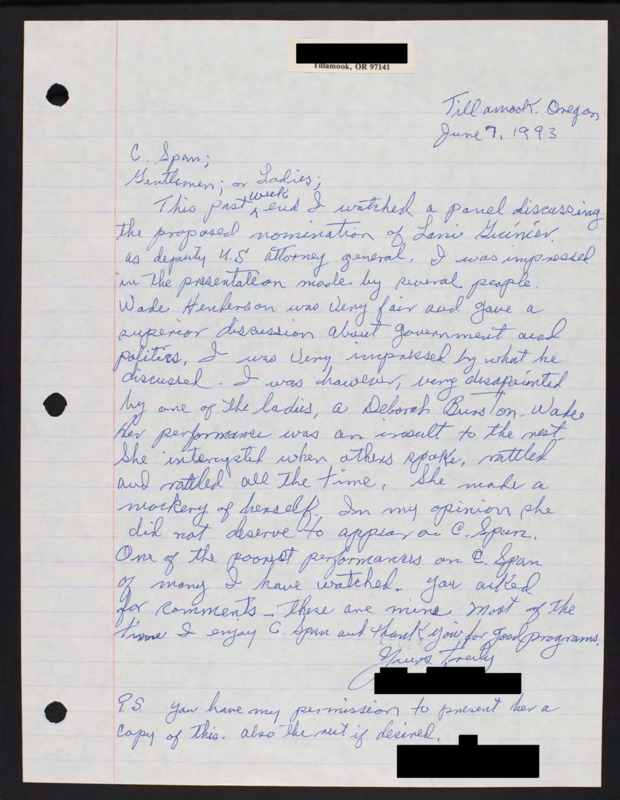 Tillamook, OR 97141
Tillamook. Oregon
June 7, 1993
C. Span;
Gentlemen; or Ladies;
This past week end I watched a panel discussing
the proposed nomination of Lani Guinier
as deputy U.S attorney general. I was impressed
in the presentation made by several people.
Wade Henderson was very fair and gave a
superior discussion about government and
politics. I was very impressed by what he
discussed. I was however, very disapointed
by one of the ladies, a Deborah Burston-Wade
her performance was an insult to the rest.
She interupted when others spoke, rattled
and rattled all the time. She made a
mockery of herself. In my opinion she
did not deserve to appear on C. Span.
One of the poorest performances on C. Span
of many I have watched. You asked
for comments - these are mine most of the
time I enjoy C. Span and thank you for good programs.
Yours Truly
PS you have my permission to present her a
copy of this. also the rest if desired.